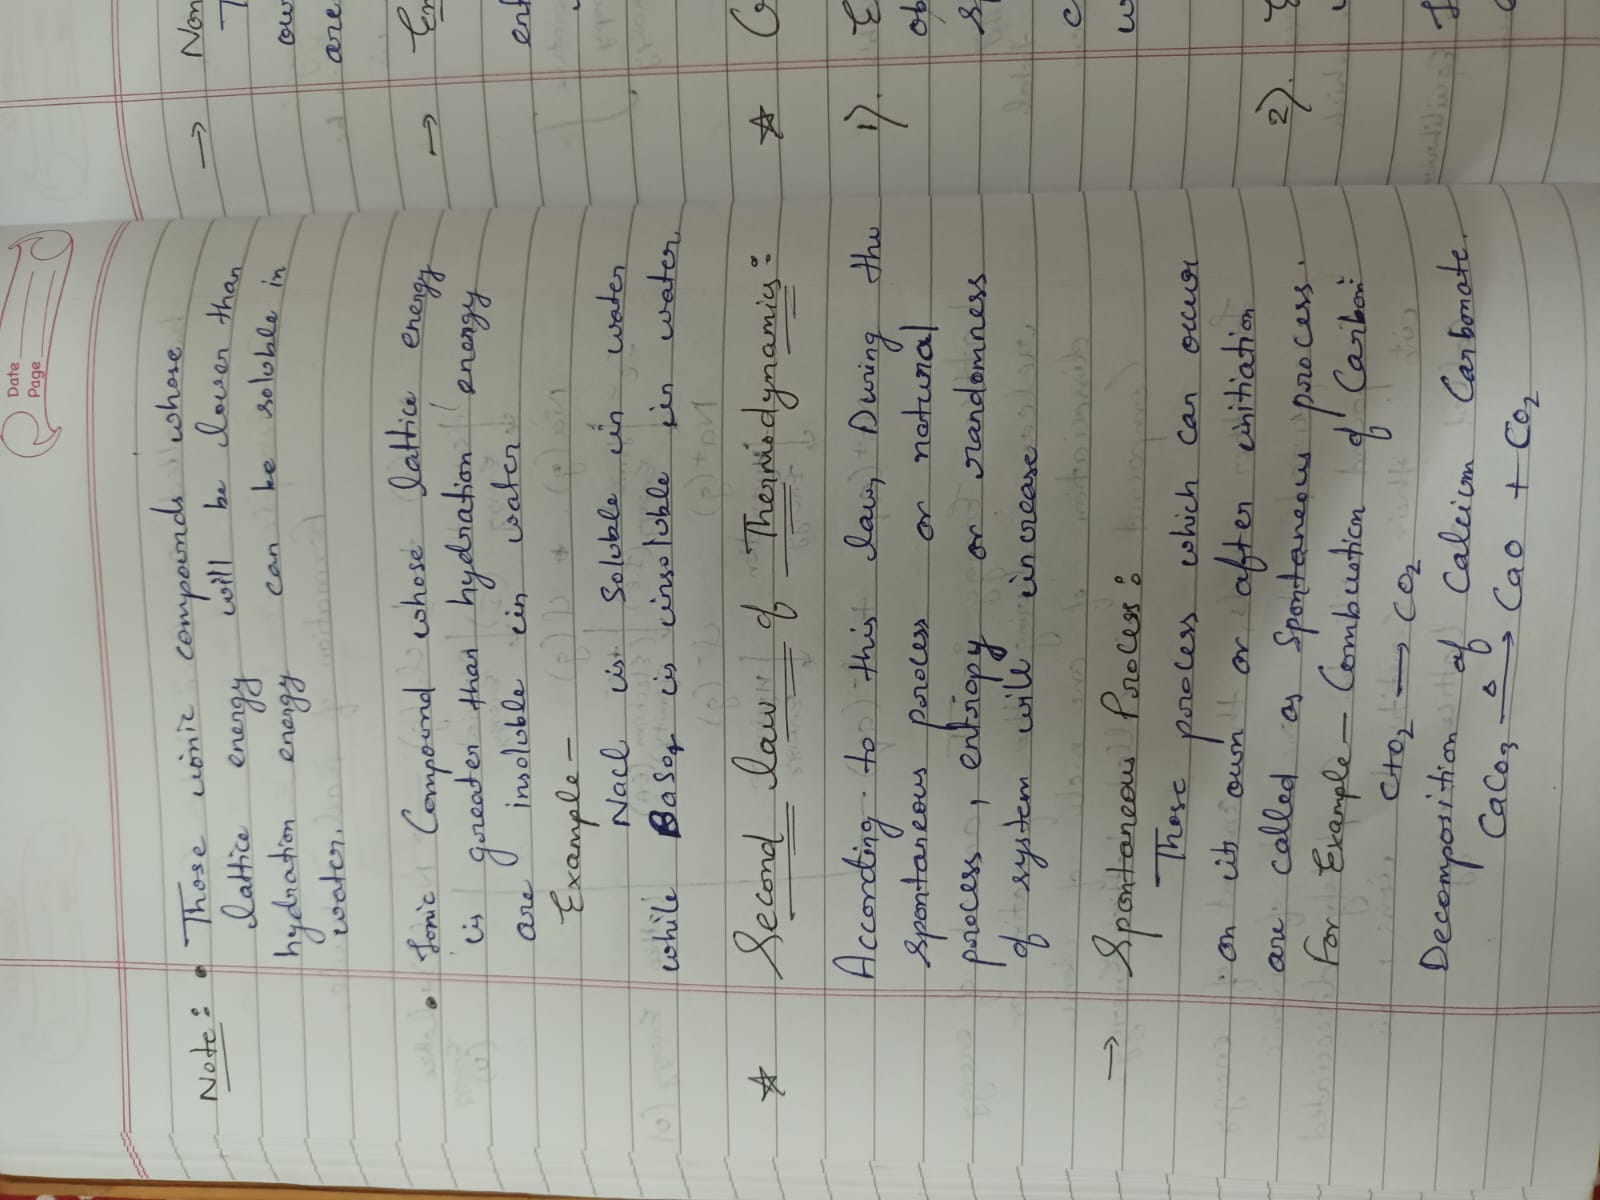 Date
Page
Note:
• Those ionic compounds whose
lattice energy will be lower than
hydration energy can be soluble in
water.
• Ionic Compound whose lattice energy
is greater than hydration energy
are insoluble in water
Example –
Nacl is Soluble in water
while BaSO4 is insoluble in water.
☆ Second law of Thermodynamics:
According to this law, During the
spontaneous process or natural
process, entropy or randomness
of system will increase
→ Spontaneous Process:
Those process which can occur
on its own or after initiation
are called as Spontaneous process.
For Example – Combustion of Carbon
C+O2 → CO2
Decomposition of Calcium Carbonate.
CaCO3 —Δ→ CaO + CO2
→ Non
own
are
→
ent
☆
1).
ob
2).